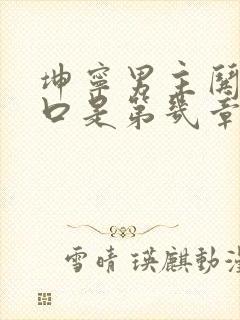 坤寧男主開
口是第幾章
雪晴 瑛麒動漫